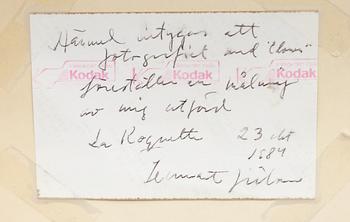 Härmed intygas att
fotografiet med "Clown"
Kodak Kodak Kodak
föreställer en målning
av mig utförd
La Roquette 23 okt
1984
Lennart Jirlow